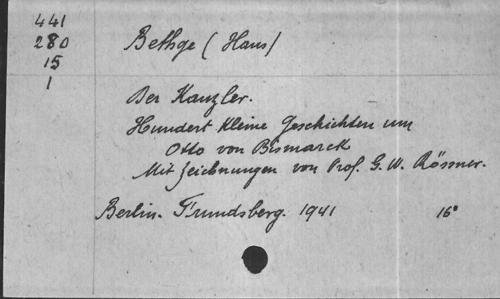 441
280
15
1
Bethge (Hans)
Der Kanzler.
Hundert kleine Geschichten um
Otto von Bismarck
Mit Zeichnungen von Prof. G. W. Rössner.
Berlin. Frundsberg. 1941 16°